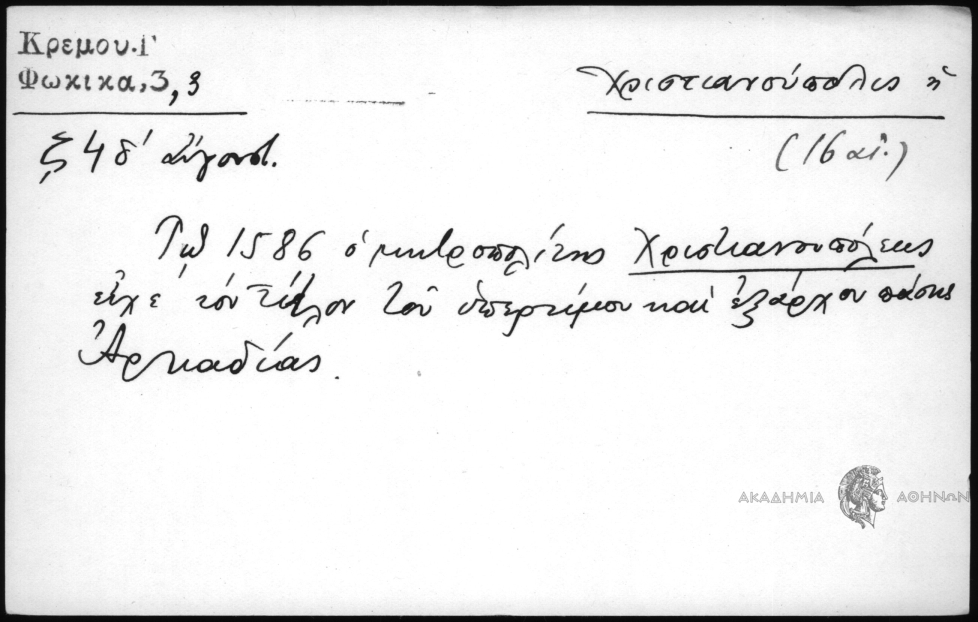 Κρεμου.Γ'
Φωκικα,3,3
Χριστιανούπολις ἡ
(16 αἰ.)
Τῷ 1586 ὁ μητροπολίτης Χριστιανουπόλεως
εἶχε τὸν τίτλον τοῦ ὑπερτίμου καὶ ἐξάρχου πάσης
Ἀρκαδίας.
ΑΚΑΔΗΜΙΑ ΑΘΗΝΩΝ